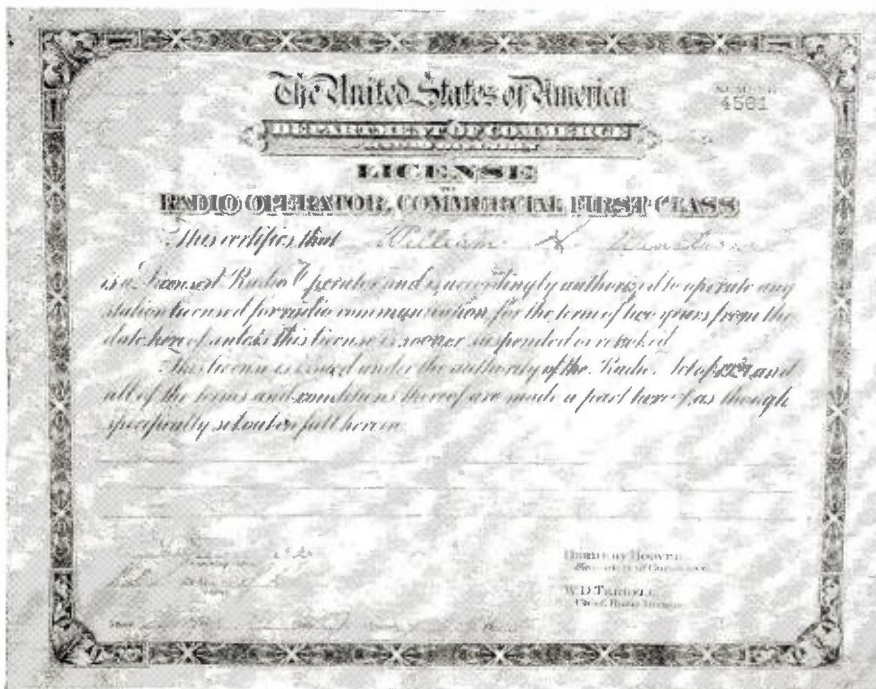 The United States of America
NUMBER
4561
DEPARTMENT OF COMMERCE
LICENSE
TO
RADIO OPERATOR, COMMERCIAL FIRST CLASS
This certifies that William
is a Licensed Radio Operator and is accordingly authorized to operate any
station licensed for radio communication for the term of two years from the
date hereof unless this license is sooner suspended or revoked
This license is issued under the authority of the Radio Act of and
all of the terms and conditions thereof are made a part hereof, as though
specifically set out in full herein
HERBERT HOOVER
Secretary of Commerce
W. D. TERRELL
Chief, Radio